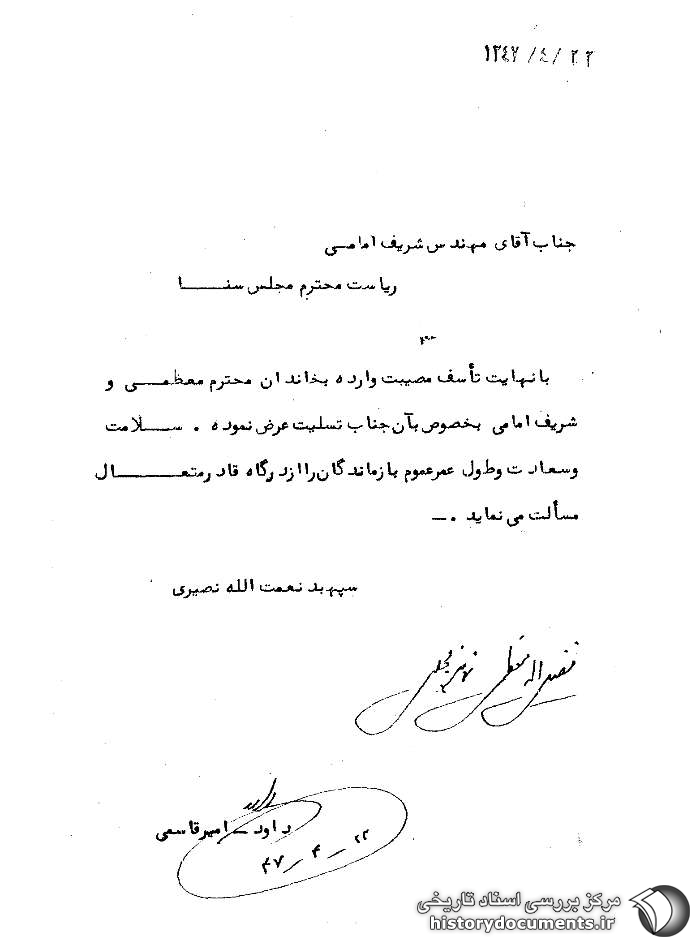 ۱۳۴۷/۴/۲۲
جناب آقای مهندس شریف امامی
ریاست محترم مجلس سنا
با نهایت تأسف مصیبت وارده بخاندان محترم معظمی و
شریف امامی بخصوص بآن جناب تسلیت عرض نموده . سلامت
وسعادت وطول عمرعموم بازماندگان را از درگاه قادر متعال
مسألت می نماید . ــ
سپهبد نعمت الله نصیری
داود ـ امیرقاسمی
۲۲ ـ ۴ ـ ۴۷
مرکز بررسی اسناد تاریخی
historydocuments.ir